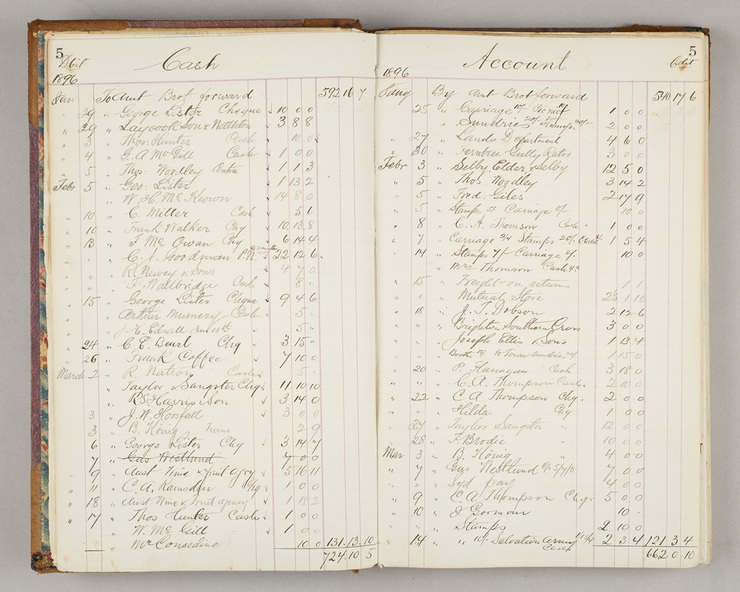 5
Debit
Cash
1896
Jan To Amt Brot forward 592 16 7
29 " George Lister Cheque 10 0 0
" 29 " Laycook Son & Nettleton 3 8 8
" 3 " Thos Hunter Cash 10 0
" 4 " G. A. McGill Cash 1 0 0
" 5 " Thos Wordley 1 1 3
Febr 5 " Geo. Lister 1 13 2
" W. H. McKeown 14 8 0
" 10 " C. Miller Cash 5 6
" 10 " Frank Walker Chq 10 13 8
" 13 " J McEwan Chq 6 14 4
" C. J. Goodman 22 12 6
" R Newey & Sons 4 7 0
" Wallbridge Cash 8
" 15 " George Lister Cheque 9 4 6
" Arthur Mummery Cash 5
" 5
" 24 " C. E. Beart Chq 3 15
" 26 " Frank Coffee 7 10 0
March 2 " R Nation Cash 5
" Taylor & Sangster Chq 11 10 10
" R S Harrison 3 14 0
" J. W. Horsfall 3 0 0
3 " B. König Wine 2 9
6 " George Lister Chq 3 14 4
7 " Gus Westlund 4 0 0
9 " Aust Wine & Fruit Agcy 5 16 11
" 11 " C. A. Ramsdin Chq 1 0 0
" 18 " Aust Wine & Fruit Agency 1 18 2
" 17 " Thos Hunter Cash 1 0 0
" W. McGill 1 0 0
" McConsedine 10 0 131 13 10
724 10 5
5
Account
Credit
1896
Jany By Amt Brot forward 540 17 6
25 " Carriage 1 0 0
" Sundries 2 0 0
" 27 " Lands Department 4 6 0
" 30 " Ferntree Gully Rates 3 0 0
Febr 3 " Selby Elder & Selby 12 5 0
" 5 " Thos Wordley 3 14 2
" 5 " Fred. Giles 2 17 9
" 5 " Stamps & Carriage 10 0
" 8 " C. A. Thomson Cash 1 0 0
" 7 " Carriage Stamps 1 5 4
" 14 " Stamps Carriage 10 0
" Mrs Thomson Cash
" 15 " Freight on returns 1 1
" Mutual Store 23 1 10
" 18 " J. T. Dobson 2 12 6
" Brighton Southern Cross 3 0 0
" Joseph Ellis & Sons 1 13 4
1 15 0
" 20 " P. Flanagan Cash 3 18 0
" C. A. Thompson Cash 2 10 0
" 22 " C A Thompson Chq 2 0 0
" Hilda Chq 1 0 0
" 27 " Taylor Sangster " 12 0 0
" 28 " F. Brodie " 10 0
Mar 3 " B. König " 4 0 0
" 7 " Gus Westlund 7 0 0
" " 4 0 0
" 9 " C A Thompson Chq 5 0 0
" 10 " J Gorman 10
" Stamps 2 10 0
" 14 " Salvation Army 2 3 4 121 3 4
662 0 10